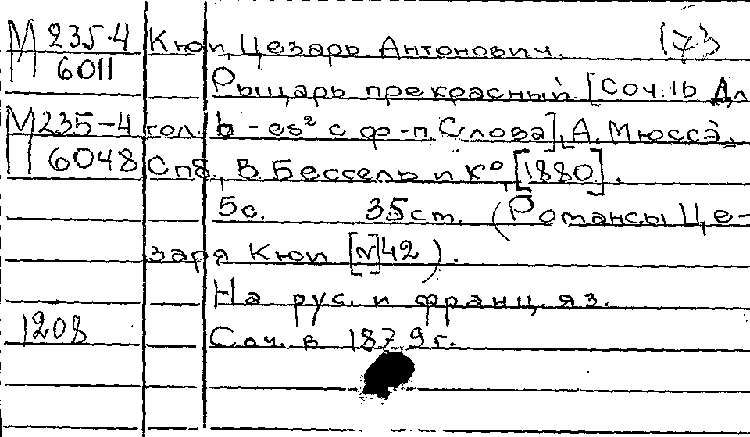 М 235-4 Кюи, Цезарь Антонович. 173
6011 Рыцарь прекрасный [Соч. 16 Дл
М 235-4 гол. b - es² с ф-п. Слова], А. Мюссэ.
6048 Спб., В. Бессель и К⁰, [1880].
5с. 35 ст. (Романсы Це-
заря Кюи [№]42).
На рус. и франц. яз.
1208 Соч. в 1879 г.